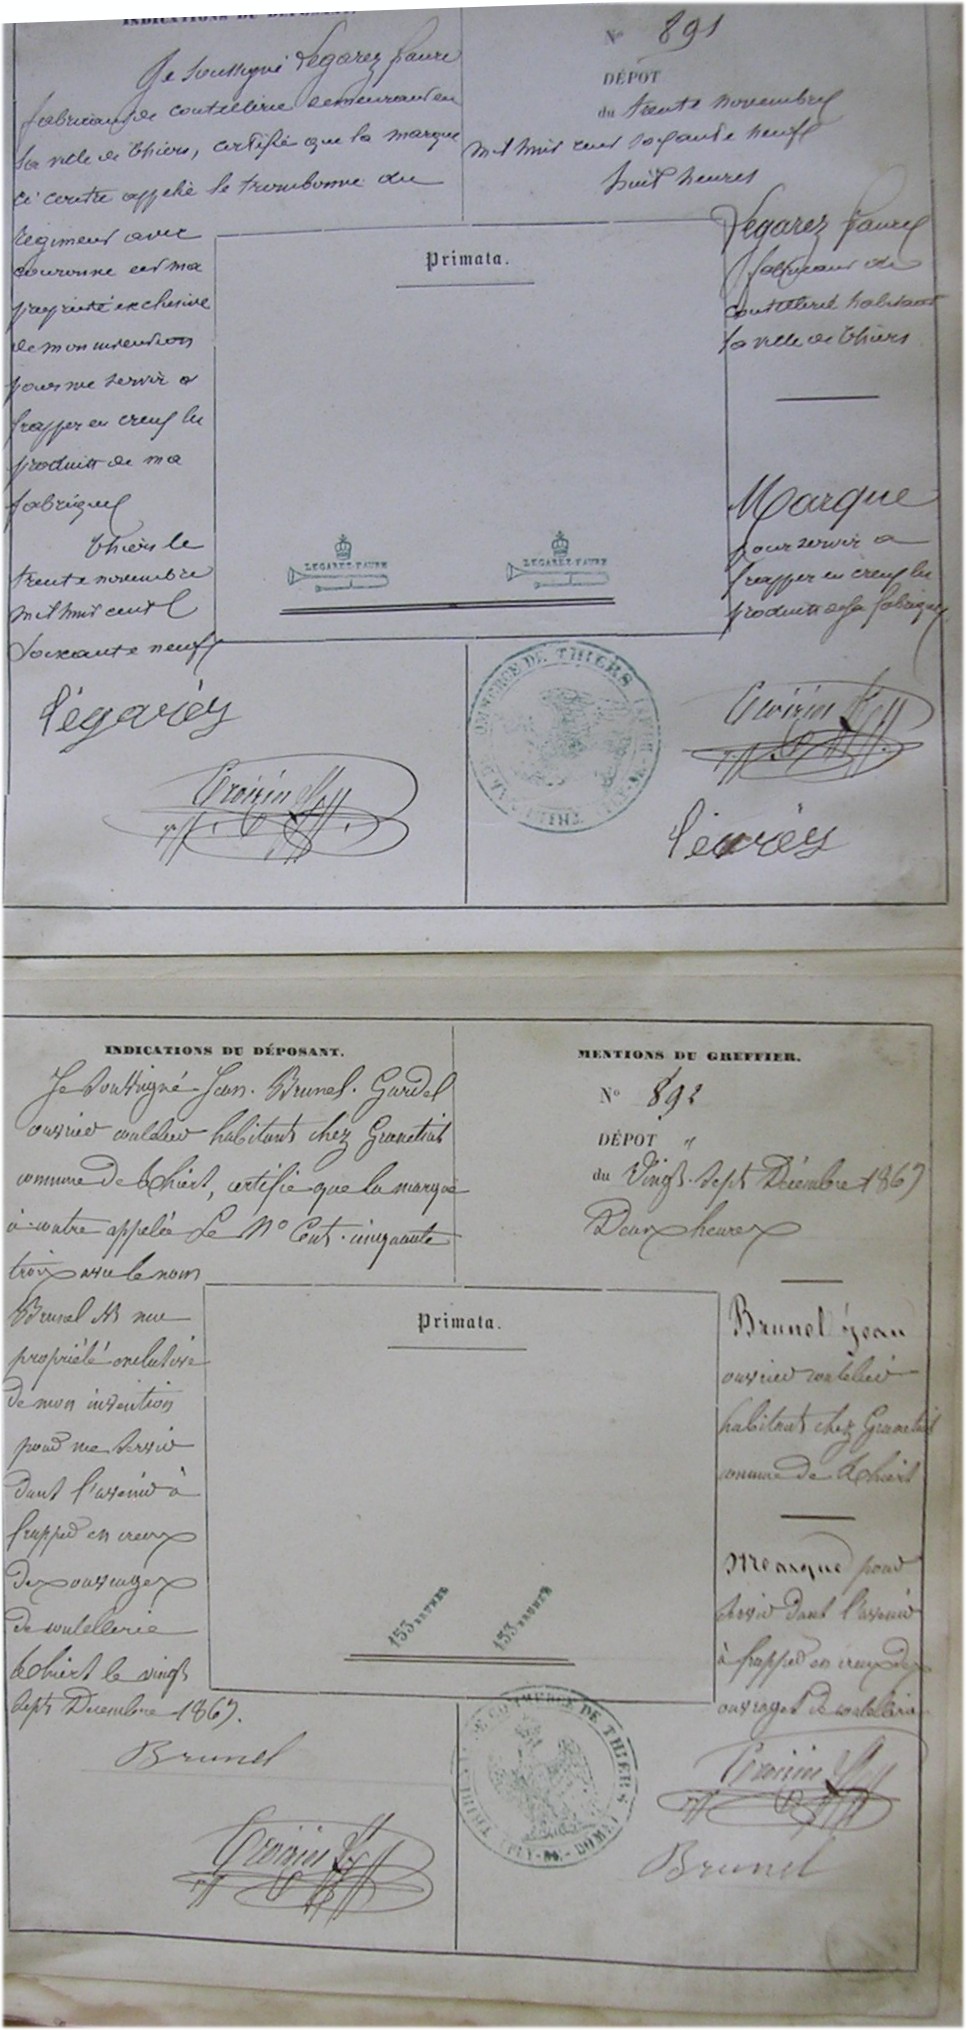 INDICATIONS DU DÉPOSANT.
Je soussigné Légarez faure
fabricant de coutellerie demeurant en
la ville de Thiers, certifie que la marque
ci contre appelée le trombonne du
régiment avec
couronne est ma
propriété exclusive
de mon invention
pour me servir a
frapper en creux les
produits de ma
fabrique
Thiers le
trente novembre
mil huit cent
soixante neuf
Légaréy
Croizier
N° 891
DÉPOT
du trente novembre
mil huit cent soixante neuf
huit heures
Légarez faure
fabricant de
coutellerie habitant
la ville de Thiers
Marque
pour servir a
frapper en creux les
produits de sa fabrique
Primata.
LEGAREZ-FAURE
LEGAREZ-FAURE
TRIBUNAL DE COMMERCE DE THIERS (PUY-DE-DOME)
Croizier
Légaréy
INDICATIONS DU DÉPOSANT.
Je soussigné Jean Brunel Gardel
ouvrier coutelier habitant chez Granetias
commune de Thiers, certifie que la marque
ci-contre appelée Le N° Cent cinquante
trois avec le nom
Brunel est ma
propriété exclusive
de mon invention
pour me servir
dans l'avenir à
frapper en creux
des ouvrages
de coutellerie
Thiers le vingt
sept Décembre 1869.
Brunel
Croizier
MENTIONS DU GREFFIER.
N° 892
DÉPOT
du Vingt-sept Décembre 1869
Deux heures
Brunel Jean
ouvrier coutelier
habitant chez Granetias
commune de Thiers
Marque pour
servir dans l'avenir
à frapper en creux des
ouvrages de coutellerie
Primata.
153 BRUNEL
153 BRUNEL
TRIBUNAL DE COMMERCE DE THIERS (PUY-DE-DOME)
Croizier
Brunel